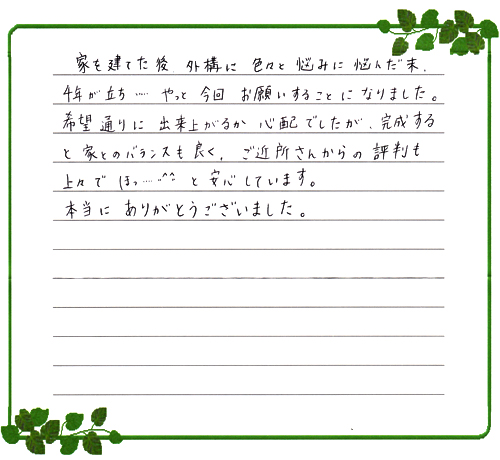 家を建てた後、外構に色々と悩みに悩んだ末、
4年が立ち…… やっと今回お願いすることになりました。
希望通りに出来上がるか心配でしたが、完成する
と家とのバランスも良く、ご近所さんからの評判も
上々でほっ……^^と安心しています。
本当にありがとうございました。